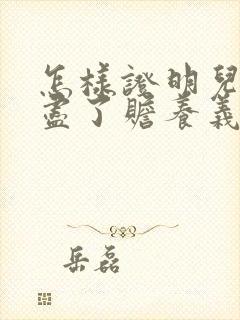 怎樣證明兒
盡了贍養義
岳磊